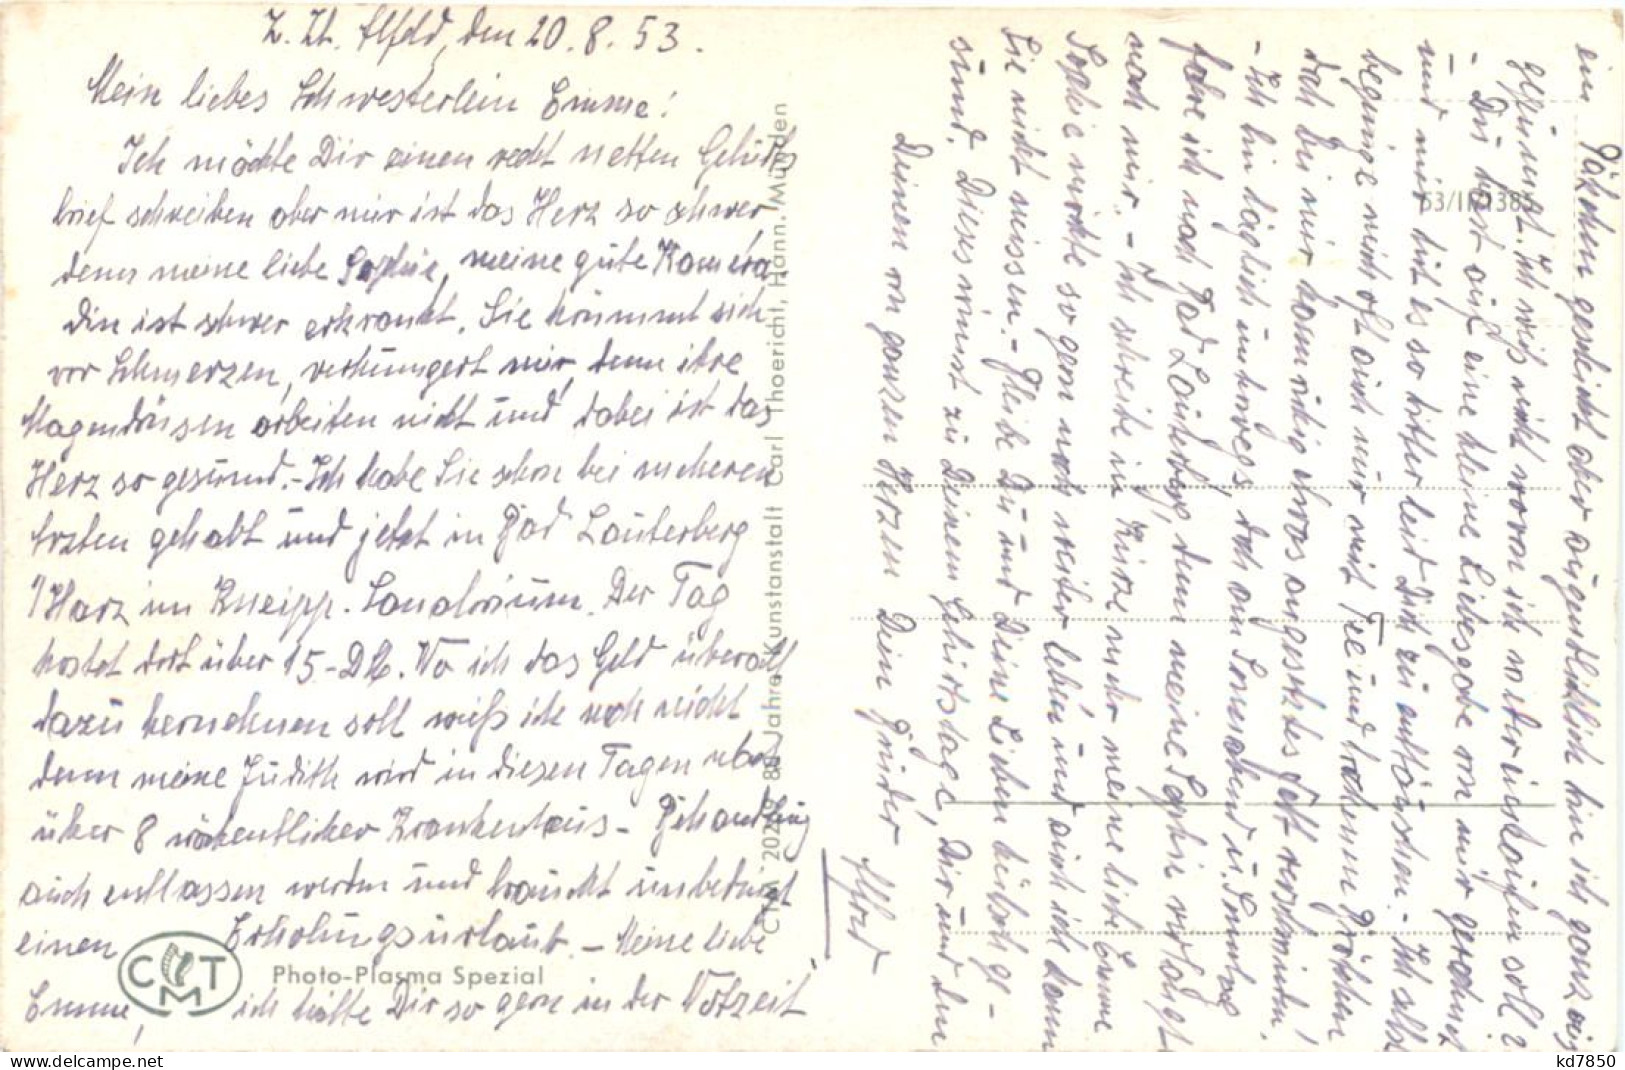 Z. Zt. Alfeld, den 20.8.53.
Mein liebes Schwesterlein Emme!
Ich möchte Dir einen recht netten Geburts
brief schreiben aber mir ist das Herz so schwer
denn meine liebe Sophie, meine gute Kamera
din ist schwer erkrankt. Sie krümmt sich
vor Schmerzen, verhungert mir, denn ihre
Magendrüsen arbeiten nicht und dabei ist das
Herz so gesund. - Ich habe Sie schon bei mehreren
Ärzten gehabt und jetzt in Bad Lauterberg
/Harz im Kneipp-Sanatorium. Der Tag
kostet dort über 15.-DM. Wo ich das Geld überall
dazu hernehmen soll weiß ich noch nicht
denn meine Judith wird in diesen Tagen nach
über 8 wöchentlicher Krankenhaus-Behandlung
auch entlassen werden und braucht unbedingt
einen Erholungsurlaub. - Meine liebe
Emme, ich hätte Dir so gern in der Notzeit
CMT
Photo-Plasma Spezial
80 Jahre Kunstanstalt Carl Thoericht, Hann. Münden
53/II/1385
ein Päckchen geschickt aber augenblicklich bin ich ganz
Ich weiß nicht wovon ich weiter einkaufen soll?
- Du hast auf eine kleine Liebesgabe von mir gerechnet
und mir tut es so bitter leid Dich zu enttäuschen. - Ich selbst
begnüge mich oft auch nur mit Tee und trockenem Brötchen
daß bei mir kaum etwas angesetztes Fett verschwindet!
- Ich bin täglich unterwegs, doch am Sonnabend u. Sonntag
fahre ich nach Bad Lauterberg, denn meine Sophie verlangt
nach mir. - Ich schreibe in Kürze mehr meine liebe Emme
Sophie möchte so gern noch weiter leben und auch ich kann
Sie nicht missen. - Bleibe Du und Deine Lieben hübsch ge-
sund. Dieses wünscht zu Deinem Geburtstage, Dir und den
Deinen von ganzen Herzen Dein Bruder
Alfred
kd7850